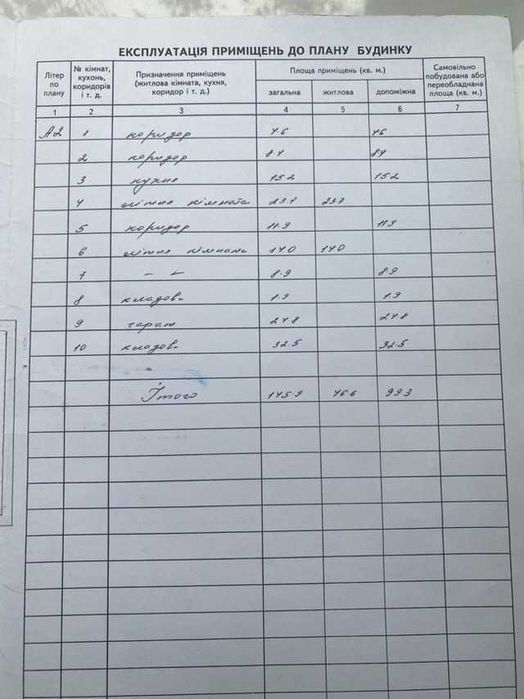 ЕКСПЛУАТАЦІЯ ПРИМІЩЕНЬ ДО ПЛАНУ БУДИНКУ
Літер по плану № кімнат, кухонь, коридорів і т. д. Призначення приміщень (житлова кімната, кухня, коридор і т. д.) Площа приміщень (кв. м.) загальна житлова допоміжна Самовільно побудована або переобладнана площа (кв. м.)
1 2 3 4 5 6 7
А2 1 коридор 7.6 7.6
2 коридор 8.4 8.4
3 кухня 15.2 15.2
4 літня кімната
5 коридор 11.9 11.9
6 літня кімната 14.0 14.0
7 – " – 8.9 8.9
8 кладов. 1.9 1.9
9 гараж 24.8 24.8
10 кладов. 32.5 32.5
Ітого